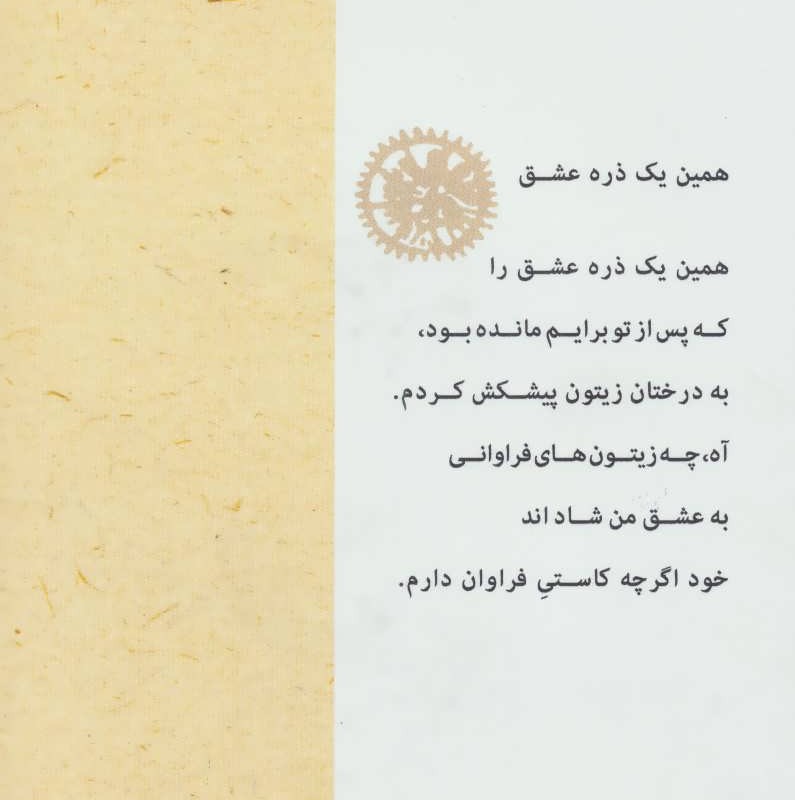 همین یک ذره عشق
همین یک ذره عشق را
که پس از تو برایم مانده بود،
به درختان زیتون پیشکش کردم.
آه، چه زیتون‌های فراوانی
به عشق من شاد اند
خود اگرچه کاستیِ فراوان دارم.